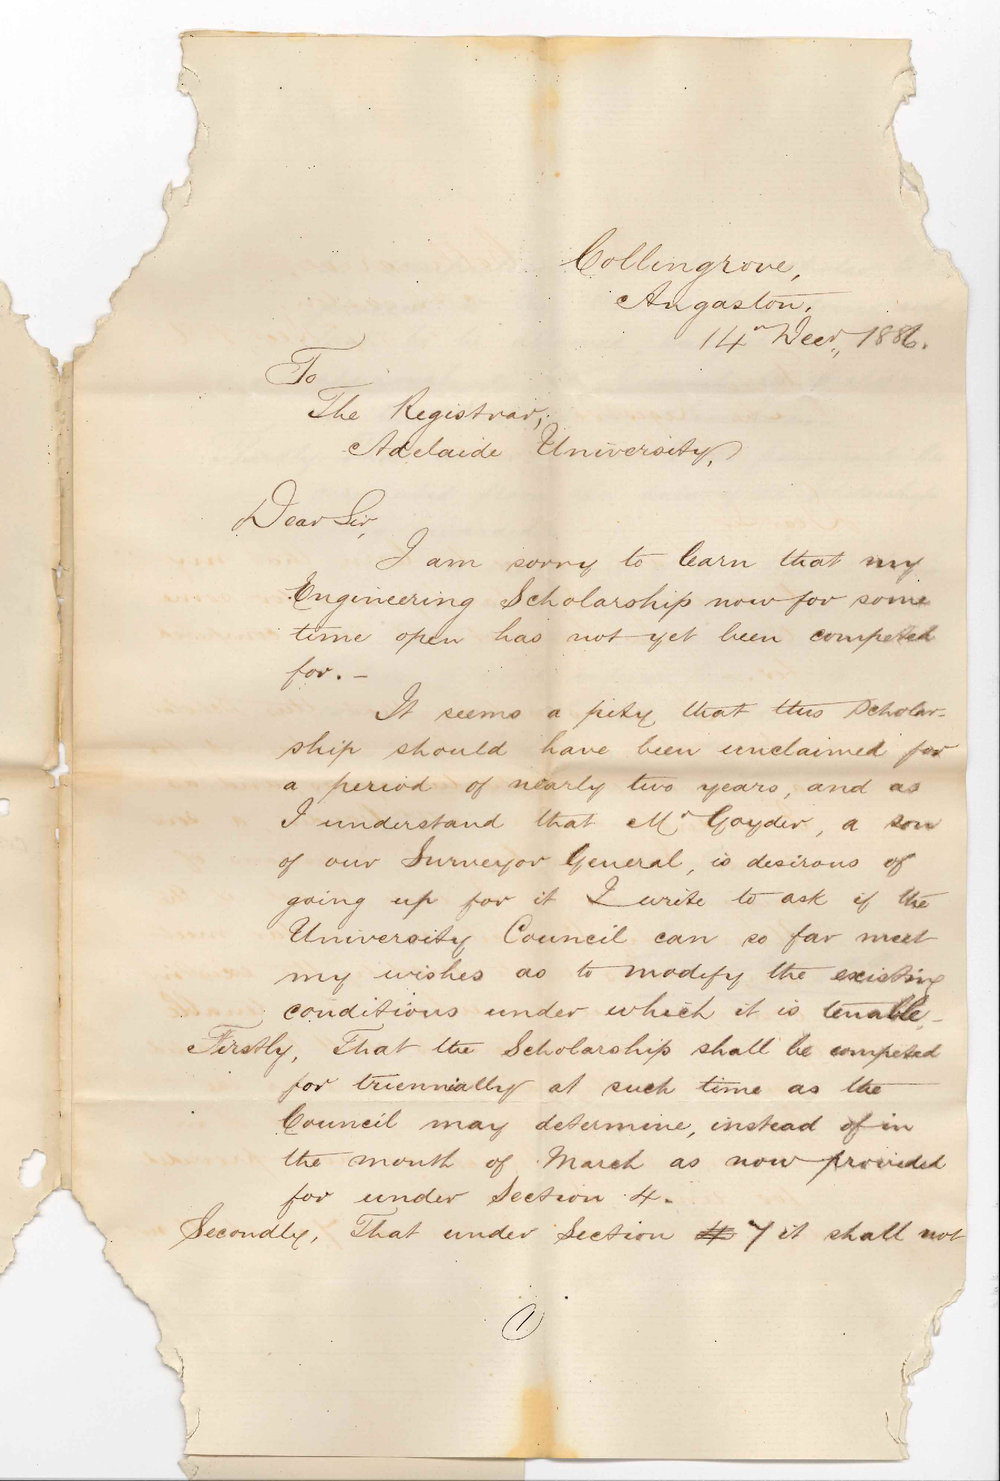 Collingrove,
Angaston.
14th Decr., 1886.
To
The Registrar,
Adelaide University,
Dear Sir,
I am sorry to learn that my
Engineering Scholarship now for some
time open has not yet been competed
for. –
It seems a pity that this Scholar-
ship should have been unclaimed for
a period of nearly two years, and as
I understand that Mr Goyder, a son
of our Surveyor General, is desirous of
going up for it I write to ask if the
University Council can so far meet
my wishes as to modify the existing
conditions under which it is tenable, –
Firstly, That the Scholarship shall be competed
for triennially at such time as the
Council may determine, instead of in
the month of March as now provided
for under Section 4.
Secondly, That under Section 4 7 it shall not
1